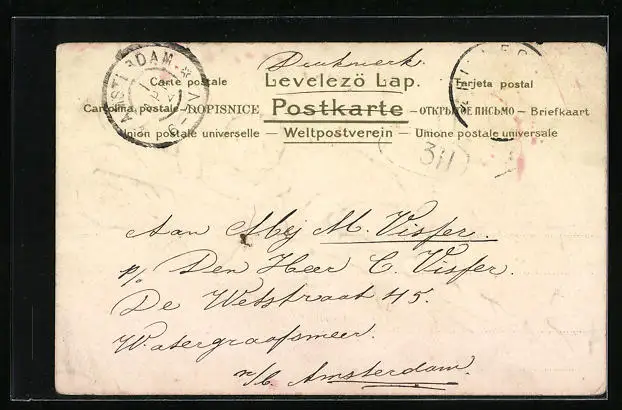 Drukwerk.
Carte postale Levelező Lap. Tarjeta postal
Cartolina postale – DOPISNICE Postkarte – ОТКРЫТОЕ ПИСЬМО – Briefkaart
Union postale universelle – Weltpostverein – Unione postale universale
AMSTERDAM
311
Aan Mej M. Visser.
p/o Den Heer C. Visser.
De Wetstraat 45.
Watergraafsmeer.
n/b. Amsterdam.